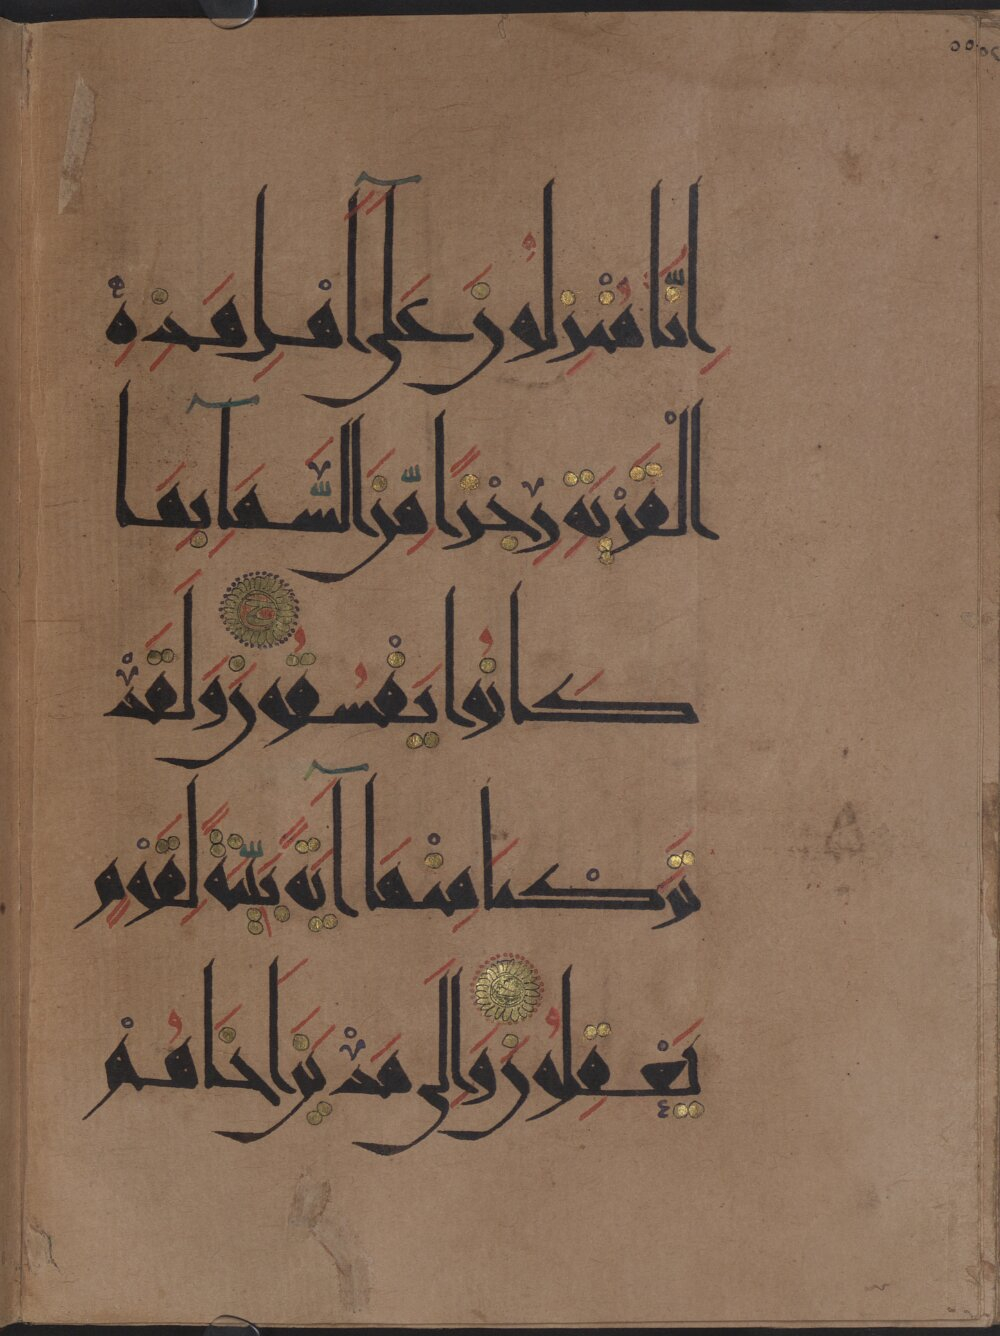 إِنَّا مُنْزِلُونَ عَلَىٰٓ أَهْلِ هَٰذِهِ
الْقَرْيَةِ رِجْزًا مِّنَ السَّمَآءِ بِمَا
كَانُوا يَفْسُقُونَ وَلَقَدْ
تَرَكْنَا مِنْهَآ آيَةً بَيِّنَةً لِقَوْمٍ
يَعْقِلُونَ وَإِلَىٰ مَدْيَنَ أَخَاهُمْ